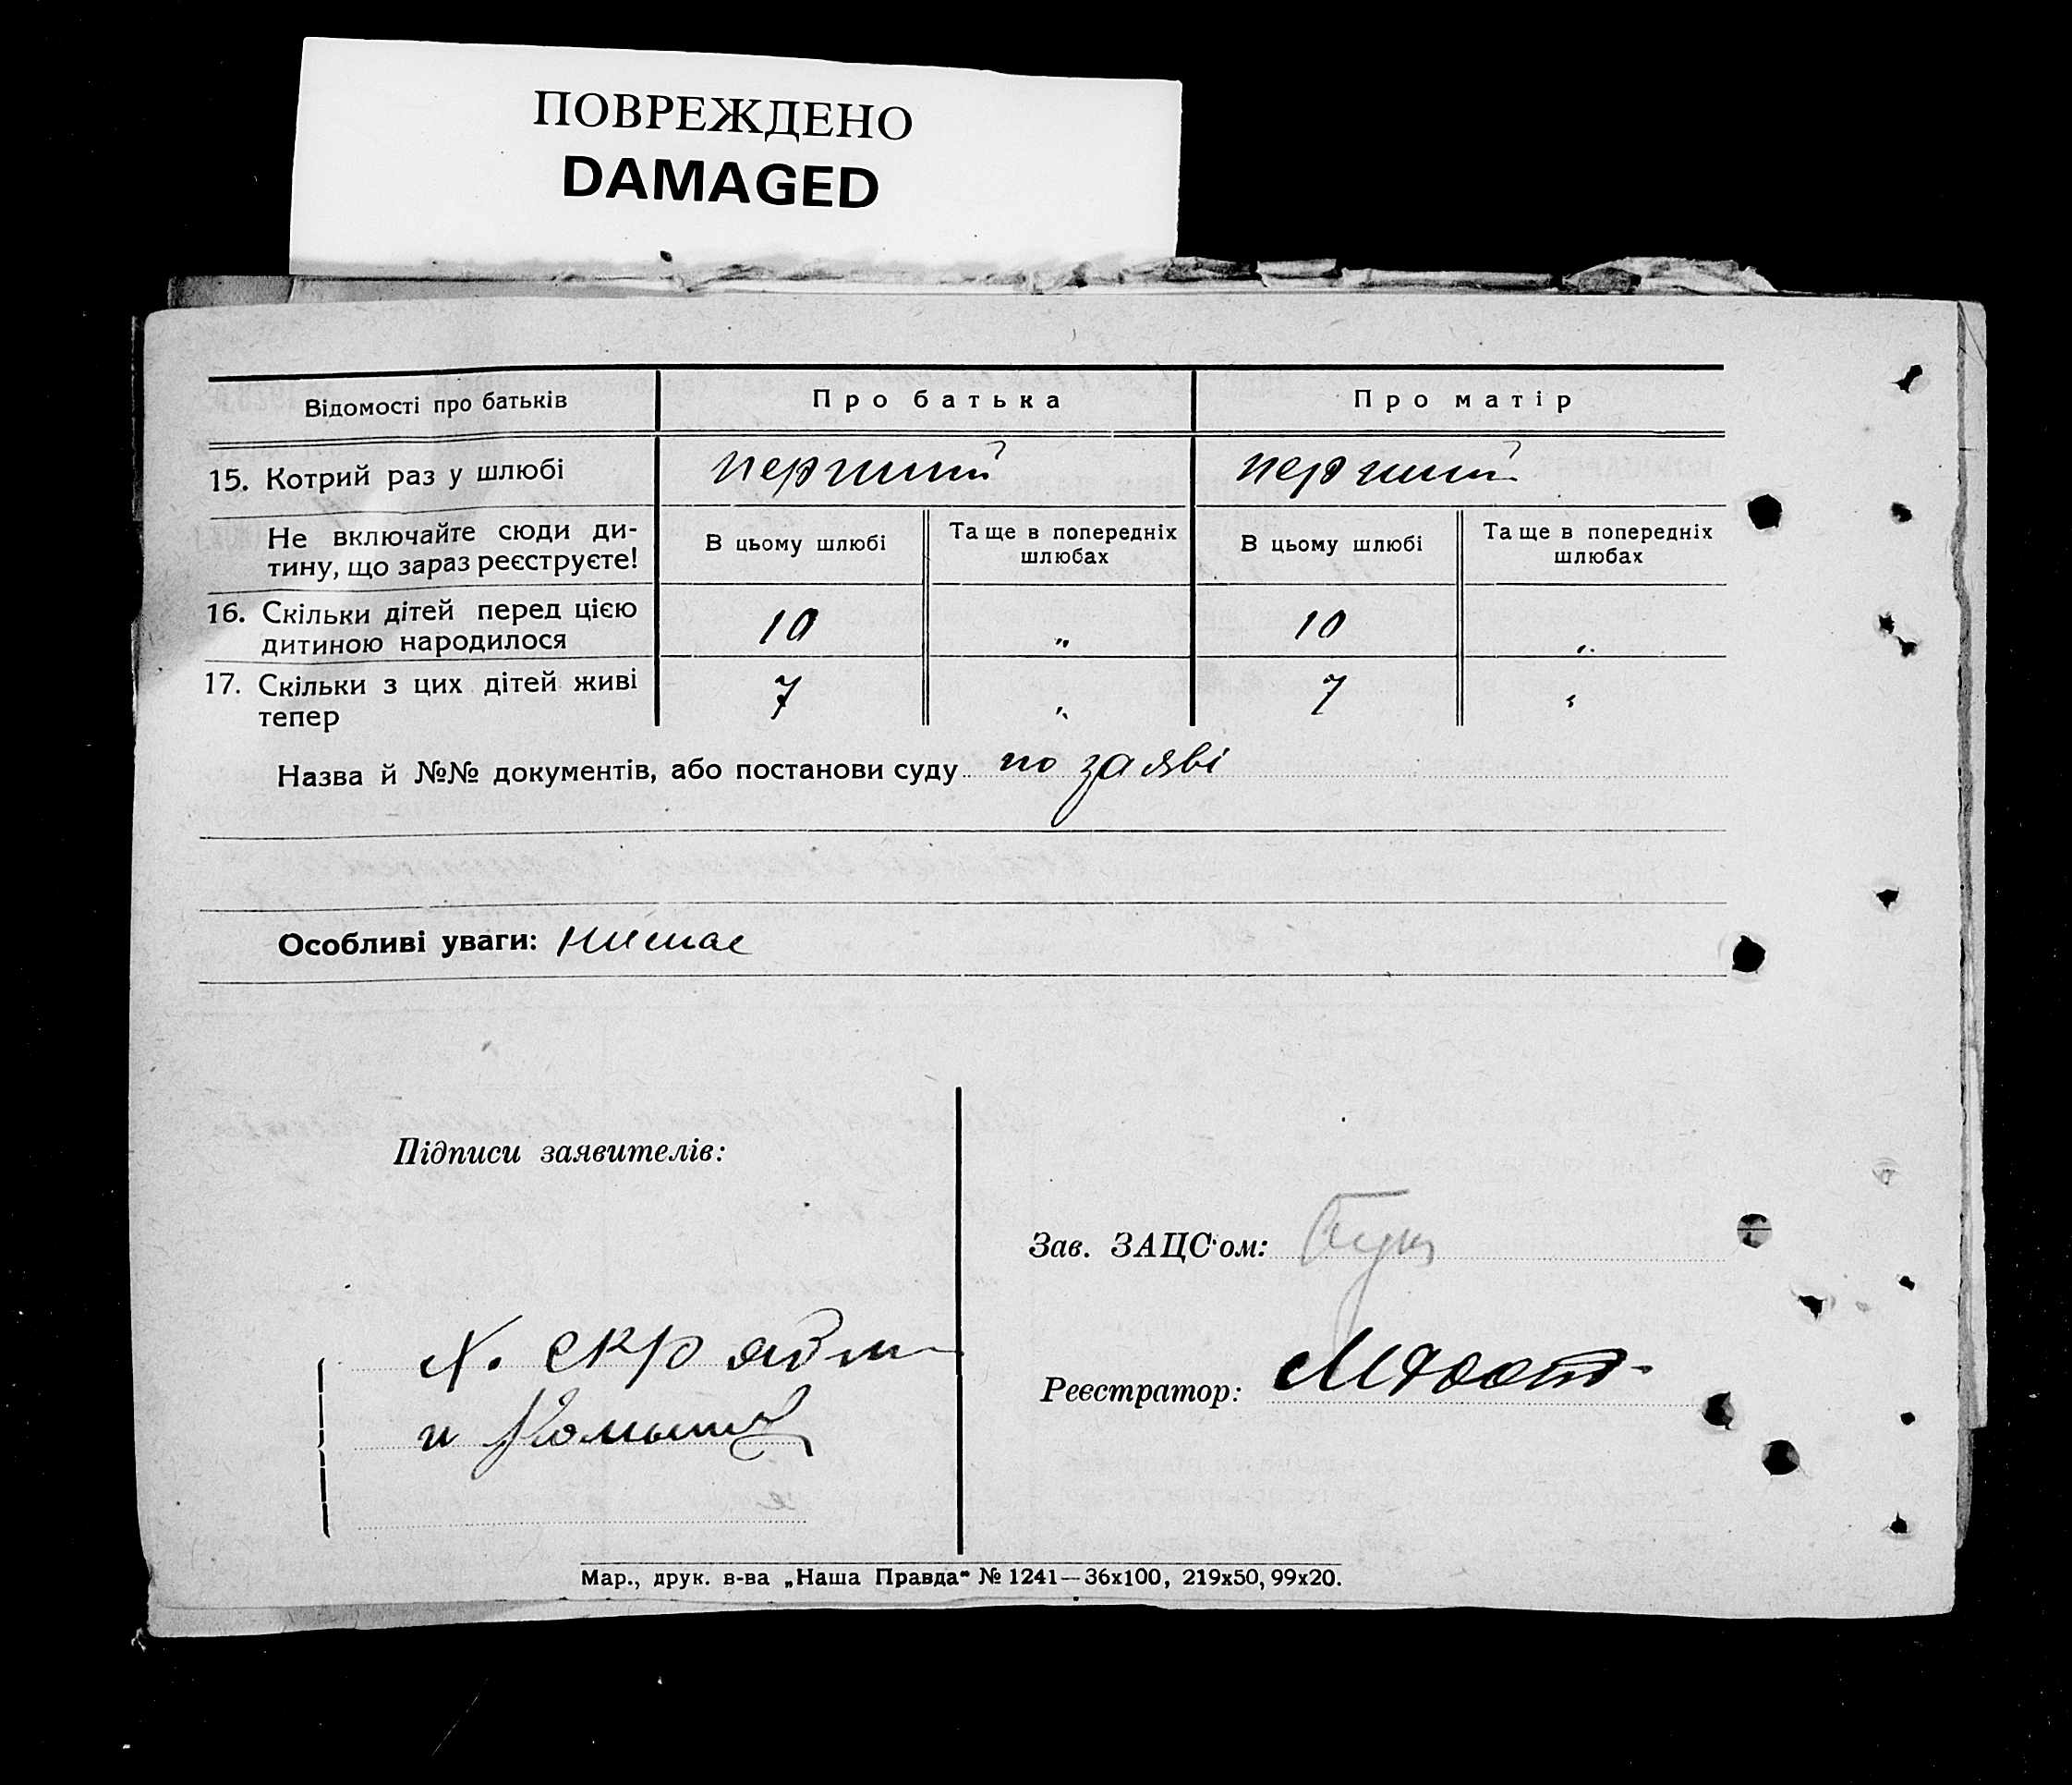 ПОВРЕЖДЕНО
DAMAGED
Відомості про батьків
Про батька
Про матір
15. Котрий раз у шлюбі
перший
перший
Не включайте сюди ди-
тину, що зараз реєструєте!
В цьому шлюбі
Та ще в попередніх
шлюбах
В цьому шлюбі
Та ще в попередніх
шлюбах
16. Скільки дітей перед цією
дитиною народилося
10
"
10
"
17. Скільки з цих дітей живі
тепер
7
"
7
"
Назва й №№ документів, або постанови суду по заяві
Особливі уваги: немає
Підписи заявителів:
Зав. ЗАЦС'ом:
Х.
и
Реєстратор:
Мар., друк. в-ва „Наша Правда" № 1241—36х100, 219х50, 99х20.